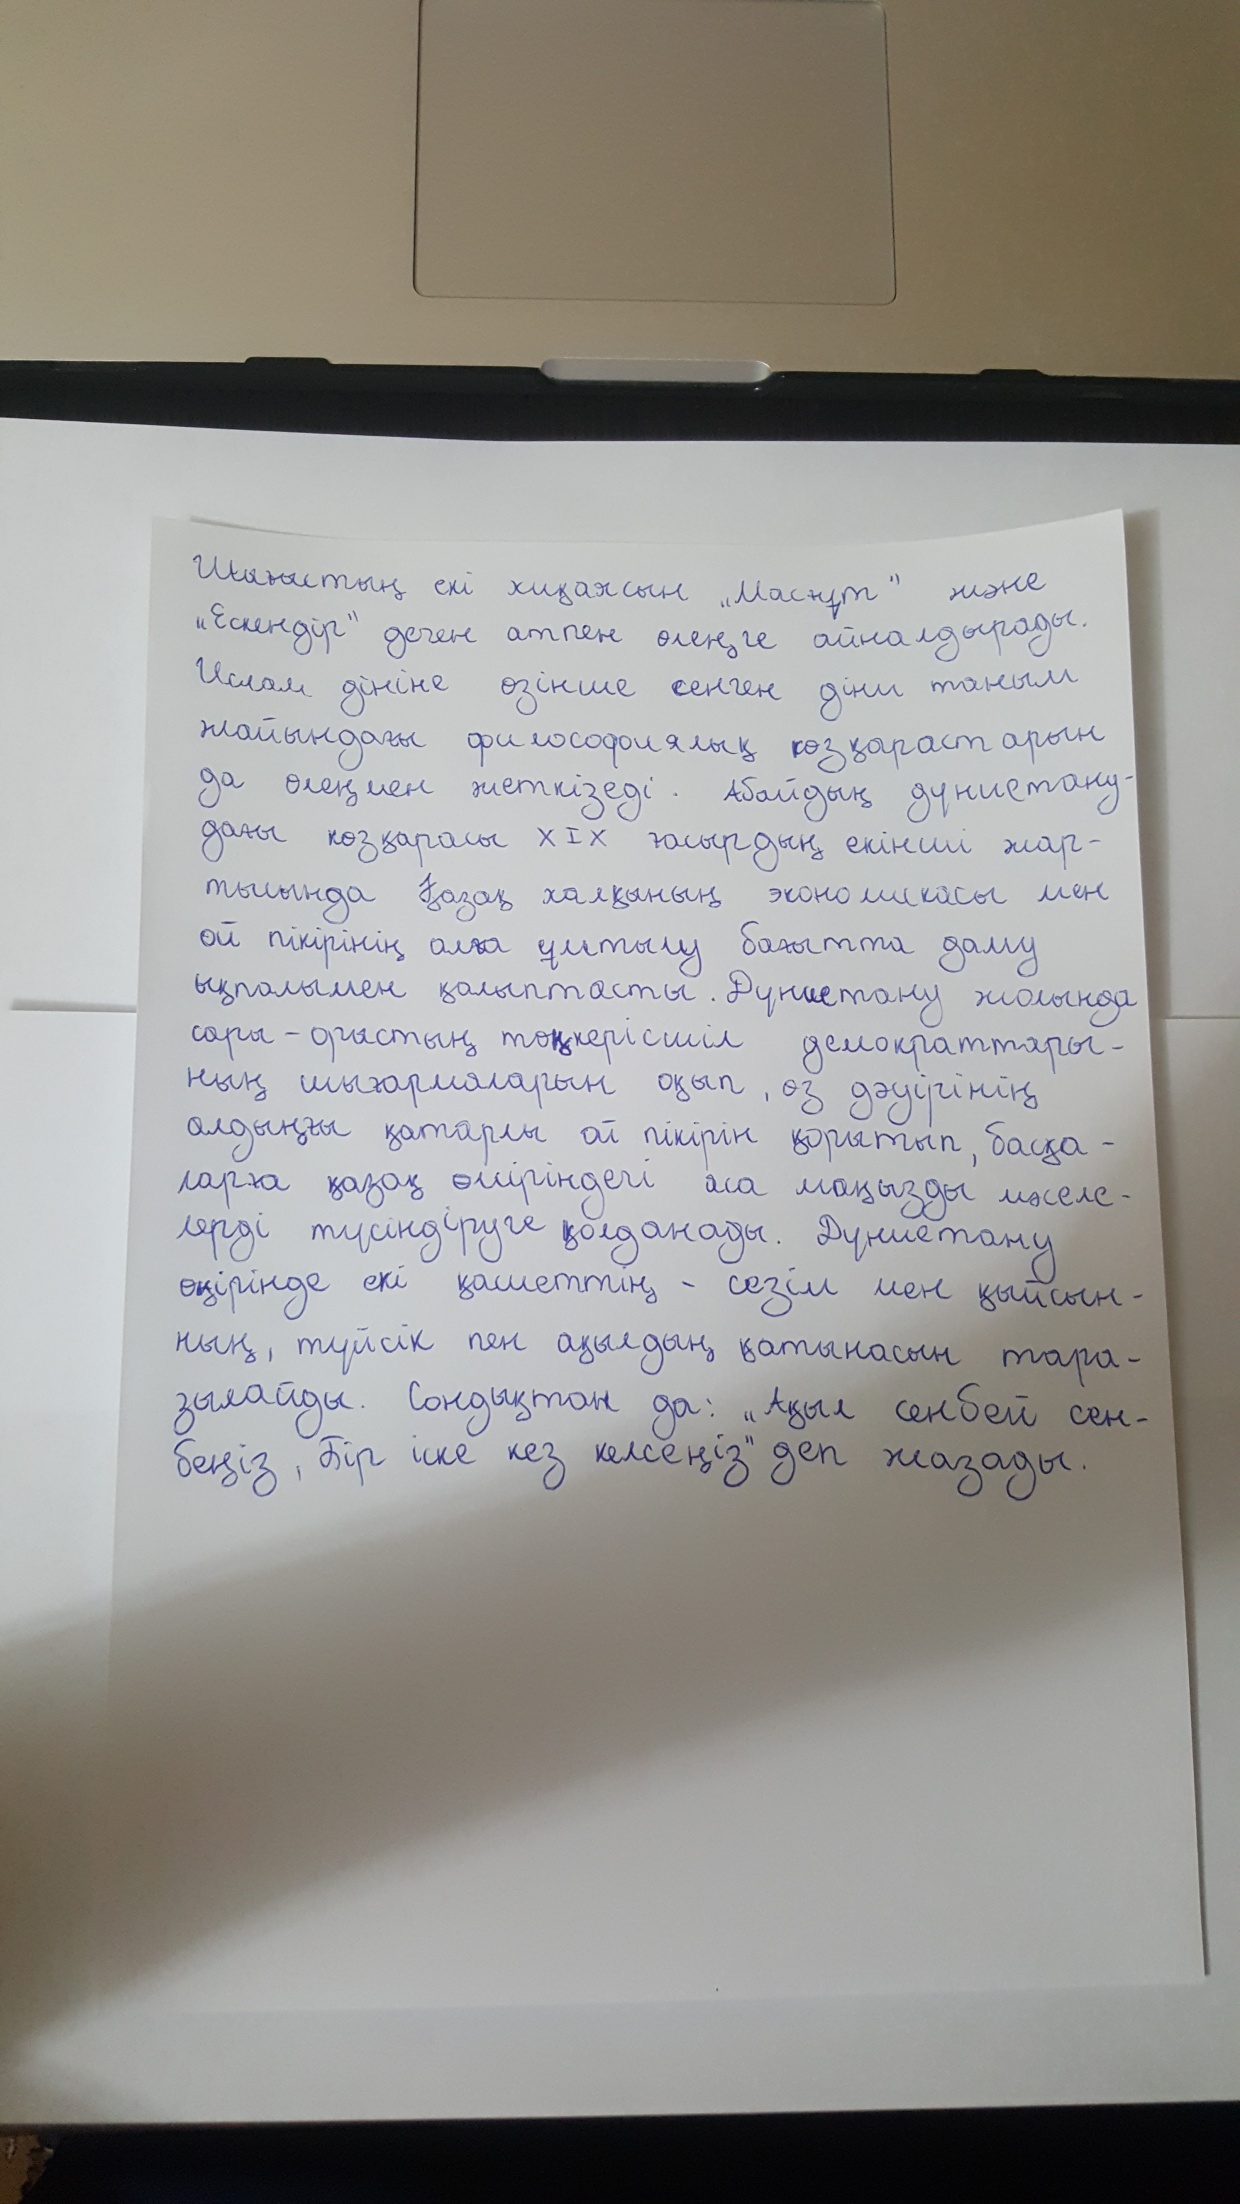 Шығыстың екі хиқаясын „Масғұт" және
„Ескендір" деген атпен өлеңге айналдырады.
Ислам дініне өзінше сенген діни таным
жайындағы философиялық көзқарастарын
да өлеңмен жеткізеді. Абайдың дүниетану-
дағы көзқарасы XIX ғасырдың екінші жар-
тысында Қазақ халқының экономикасы мен
ой пікірінің алға ұмтылу бағытта даму
ықпалымен қалыптасты. Дүниетану жолында
сары-орыстың төңкерісшіл демократтары-
ның шығармаларын оқып, өз дәуірінің
алдыңғы қатарлы ой пікірін қорытып, басқа-
ларға қазақ өміріндегі аса маңызды мәселе-
лерді түсіндіруге қолданады. Дүниетану
өңірінде екі қасиеттің - сезім мен қыйсын-
ның, түйсік пен ақылдың қатынасын тара-
зылайды. Сондықтан да: „Ақыл сенбей сен-
беңіз, Бір іске кез келсеңіз" деп жазады.